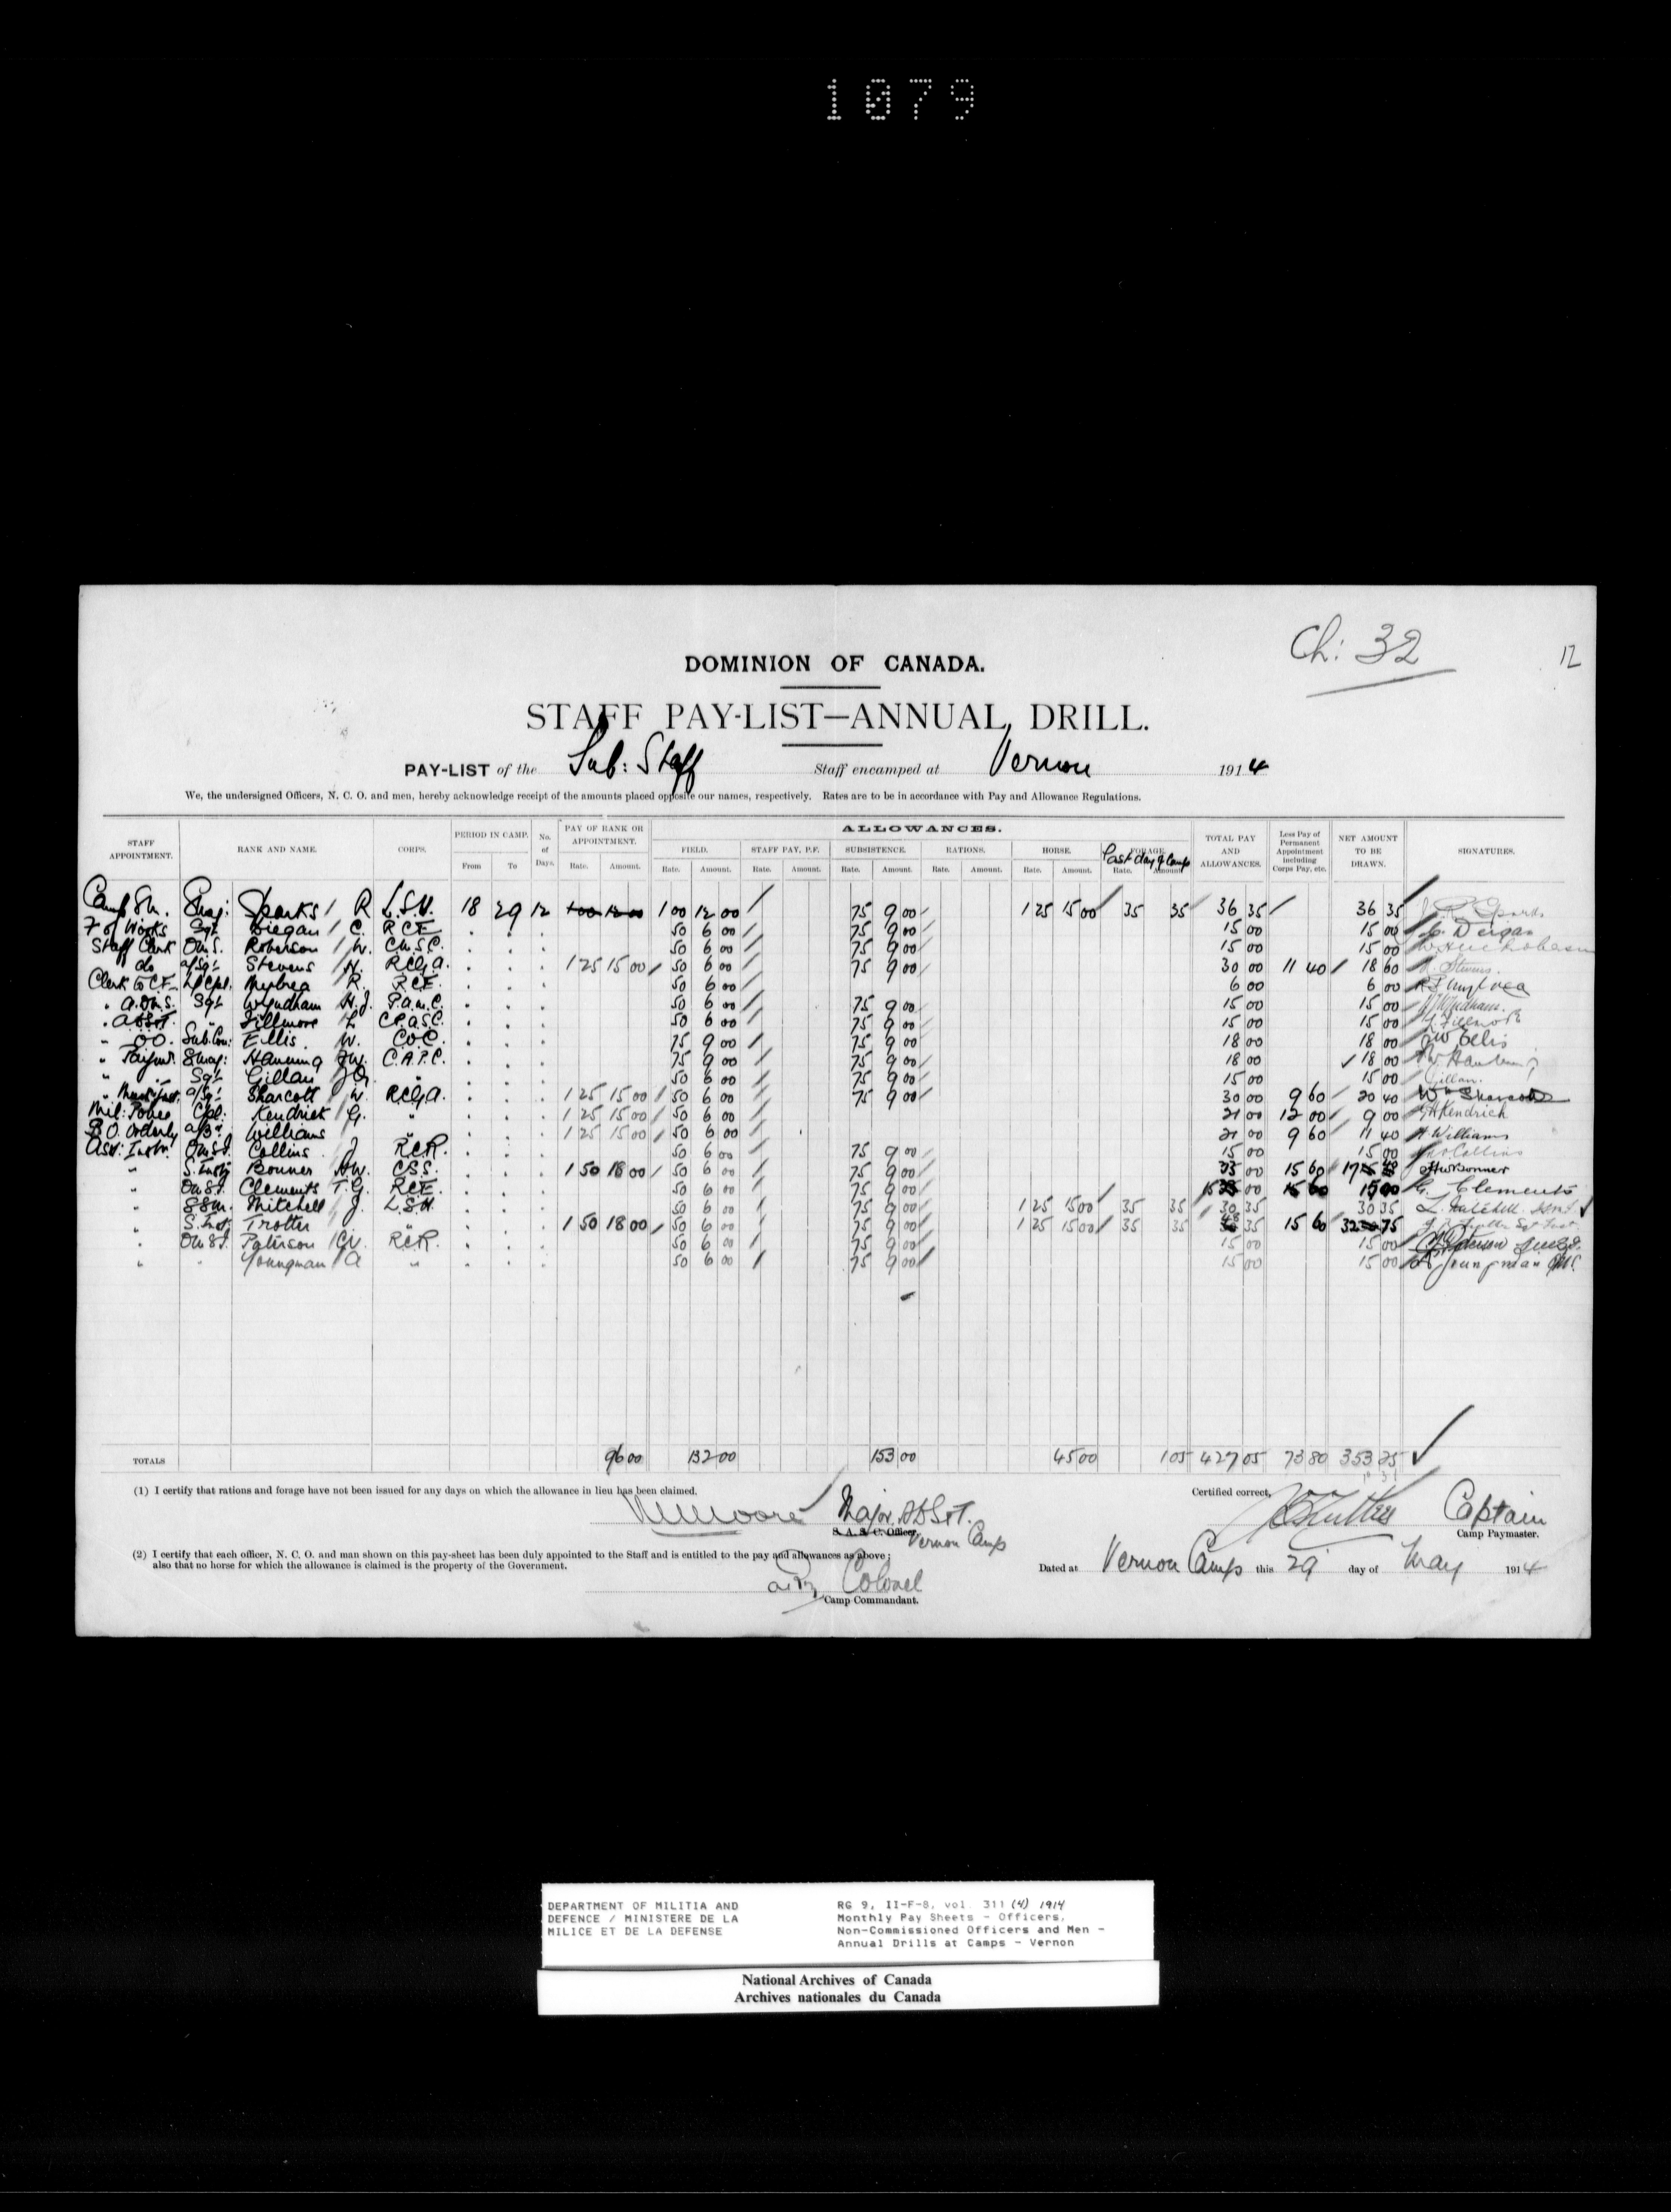 1079
Ch: 32
12
DOMINION OF CANADA.
STAFF PAY-LIST—ANNUAL DRILL.
PAY-LIST of the Sub: Staff Staff encamped at Vernon 1914
We, the undersigned Officers, N. C. O. and men, hereby acknowledge receipt of the amounts placed opposite our names, respectively. Rates are to be in accordance with Pay and Allowance Regulations.
STAFF APPOINTMENT. RANK AND NAME. CORPS. PERIOD IN CAMP. From To No. of Days. PAY OF RANK OR APPOINTMENT. Rate. Amount. ALLOWANCES. FIELD. Rate. Amount. STAFF PAY, P.F. Rate. Amount. SUBSISTENCE. Rate. Amount. RATIONS. Rate. Amount. HORSE. Rate. Amount. FORAGE. Last day of Camp Rate. Amount. TOTAL PAY AND ALLOWANCES. Less Pay of Permanent Appointment including Corps Pay, etc. NET AMOUNT TO BE DRAWN. SIGNATURES.
Camp S.M. Smaj: Sparks R L.S.H. 18 29 12 1 00 12 00 1 00 12 00 75 9 00 1 25 15 00 35 35 36 35 36 35
F of Works Sgt Diegan C. RCE 50 6 00 75 9 00 15 00 15 00 C. Deigan
Staff Clerk QMS. Roberson W. C.M.S.C. 50 6 00 75 9 00 15 00 15 00
do a/Sgt Stevens H. RCGA. 1 25 15 00 50 6 00 75 9 00 30 00 11 40 18 60 H. Stevens.
Clerk to C.E. L/Cpl. Mybrea R. RCE. 50 6 00 6 00 6 00
" A.D.M.S. Sgt Wyndham H.J. P.A.M.C. 50 6 00 75 9 00 15 00 15 00 HJ Wyndham.
" ADS&T. " Fillmore L C.P.A.S.C. 50 6 00 75 9 00 15 00 15 00 L. Fillmore
" O.O. Sub.Con: Ellis. W. C.O.C. 75 9 00 75 9 00 18 00 18 00 W Ellis
" Paymr. Smaj: Hanning F.W. C.A.P.C. 75 9 00 75 9 00 18 00 18 00
" " Sgt Gillan J.G. " 50 6 00 75 9 00 15 00 15 00 Gillan.
" a/Sgt Sharcott W. RCGA. 1 25 15 00 50 6 00 75 9 00 30 00 9 60 20 40 Wm Sharcott
Mil: Police Cpl. Kendrick G. " 1 25 15 00 50 6 00 21 00 12 00 9 00 GH Kendrick
B.O. Orderly a/Br Williams " 1 25 15 00 50 6 00 21 00 9 60 11 40 H Williams
Asst: Instr. QMSI. Collins J RCR. 50 6 00 75 9 00 15 00 15 00 Collins
" S. Instr Bonner H.W. CSS. 1 50 18 00 50 6 00 75 9 00 33 00 15 60 17 40 HW Bonner
" QMSI. Clements T.G. RCE. 50 6 00 75 9 00 15 00 15 00 G. Clements
" SSM. Mitchell J. LSH. 50 6 00 75 9 00 1 25 15 00 35 35 30 35 30 35
" S. Inst. Trotter " 1 50 18 00 50 6 00 75 9 00 1 25 15 00 35 35 48 35 15 60 32 75
" QMSI. Paterson W. RCR. 50 6 00 75 9 00 15 00 15 00
" " Youngman A " 50 6 00 75 9 00 15 00 15 00 A Youngman QMS.
TOTALS 96 00 132 00 153 00 45 00 1 05 427 05 73 80 353 25
(1) I certify that rations and forage have not been issued for any days on which the allowance in lieu has been claimed.
Moore Major. ADS&T.
S. A. S. C. Officer.
Vernon Camp
Certified correct, Captain
Camp Paymaster.
(2) I certify that each officer, N. C. O. and man shown on this pay-sheet has been duly appointed to the Staff and is entitled to the pay and allowances as above;
also that no horse for which the allowance is claimed is the property of the Government.
Colonel
Camp Commandant.
Dated at Vernon Camp this 29 day of May 1914
DEPARTMENT OF MILITIA AND
DEFENCE / MINISTERE DE LA
MILICE ET DE LA DEFENSE
RG 9, II-F-8, vol. 311 (4) 1914
Monthly Pay Sheets - Officers,
Non-Commissioned Officers and Men -
Annual Drills at Camps - Vernon
National Archives of Canada
Archives nationales du Canada